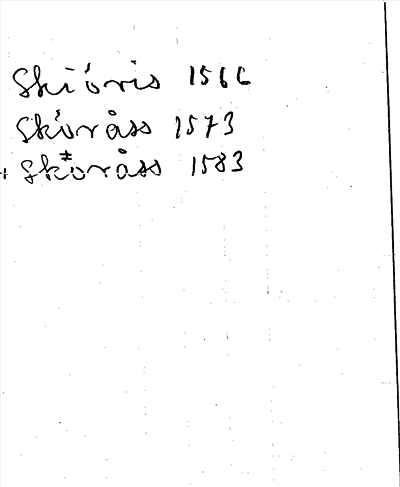 Skiöris 1566
Sköråss 1573
+ Sköråss 1583